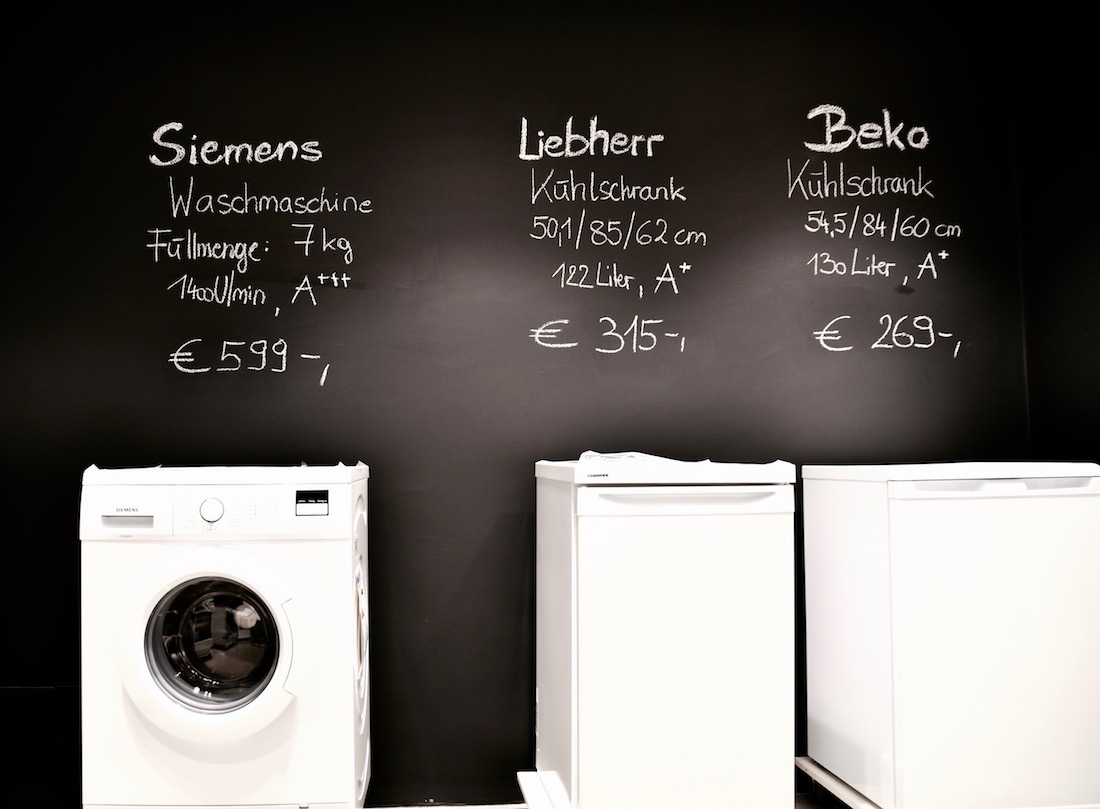 Siemens
Waschmaschine
Füllmenge: 7kg
1400U/min, A+++
€ 599-,
Liebherr
Kühlschrank
50,1/85/62 cm
122 Liter, A+
€ 315-,
Beko
Kühlschrank
54,5/84/60 cm
130 Liter, A+
€ 269-,
SIEMENS
LIEBHERR